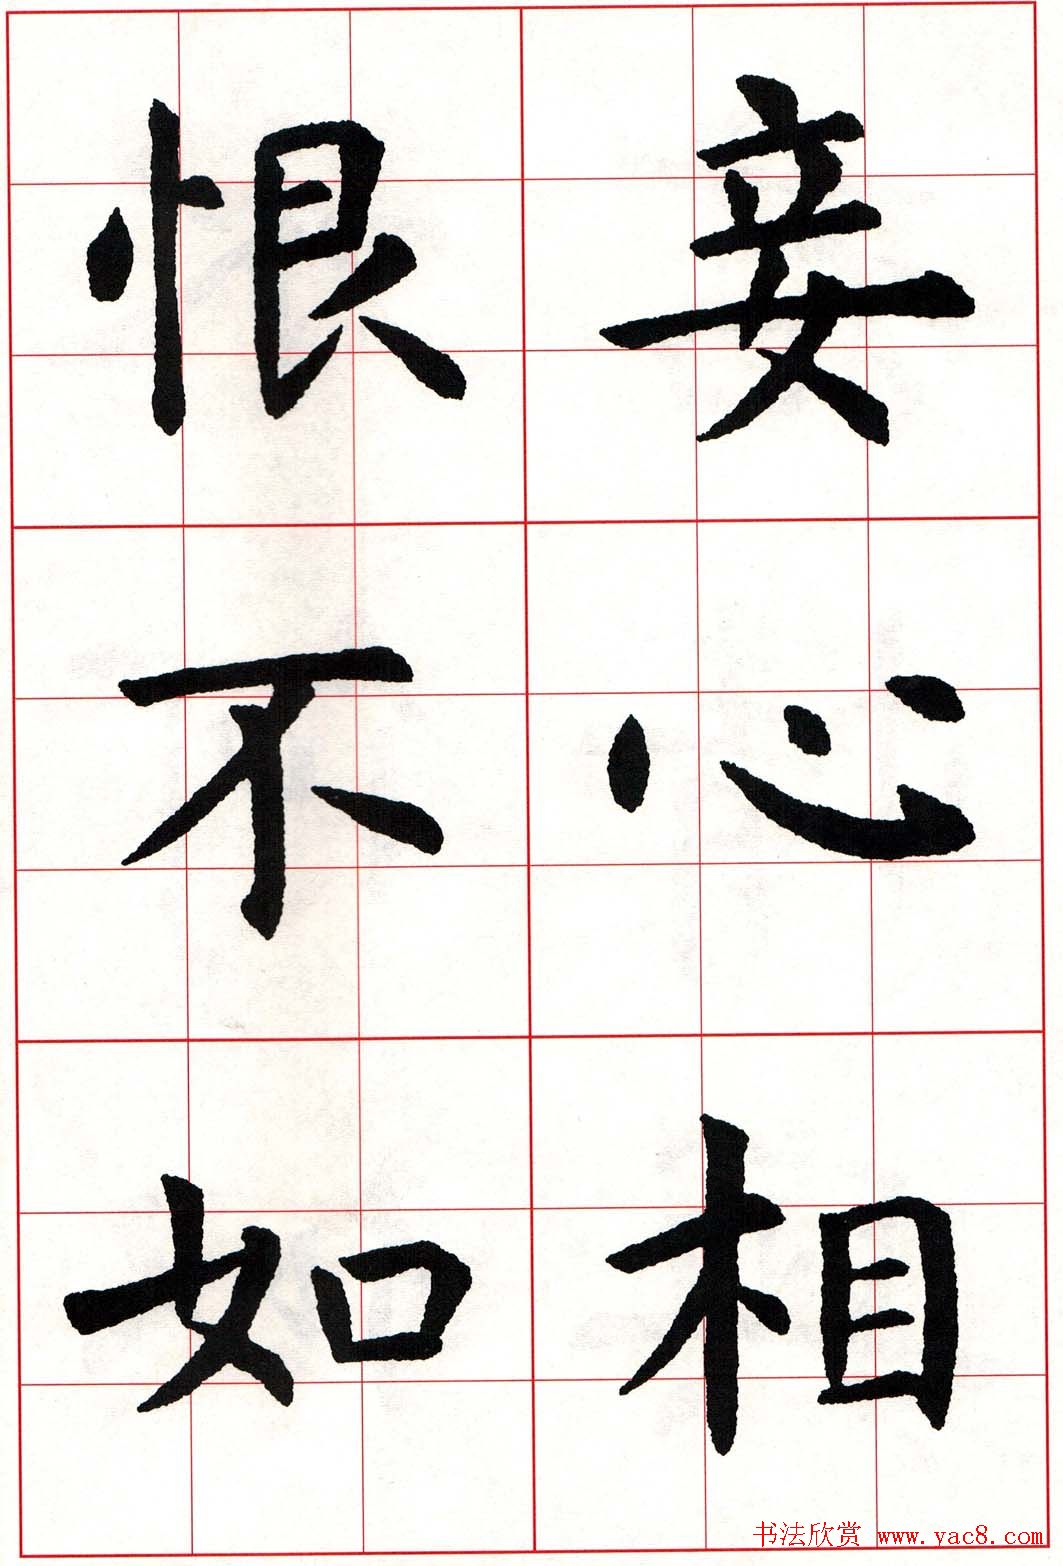 妾心相
恨不如
书法欣赏 www.yac8.com